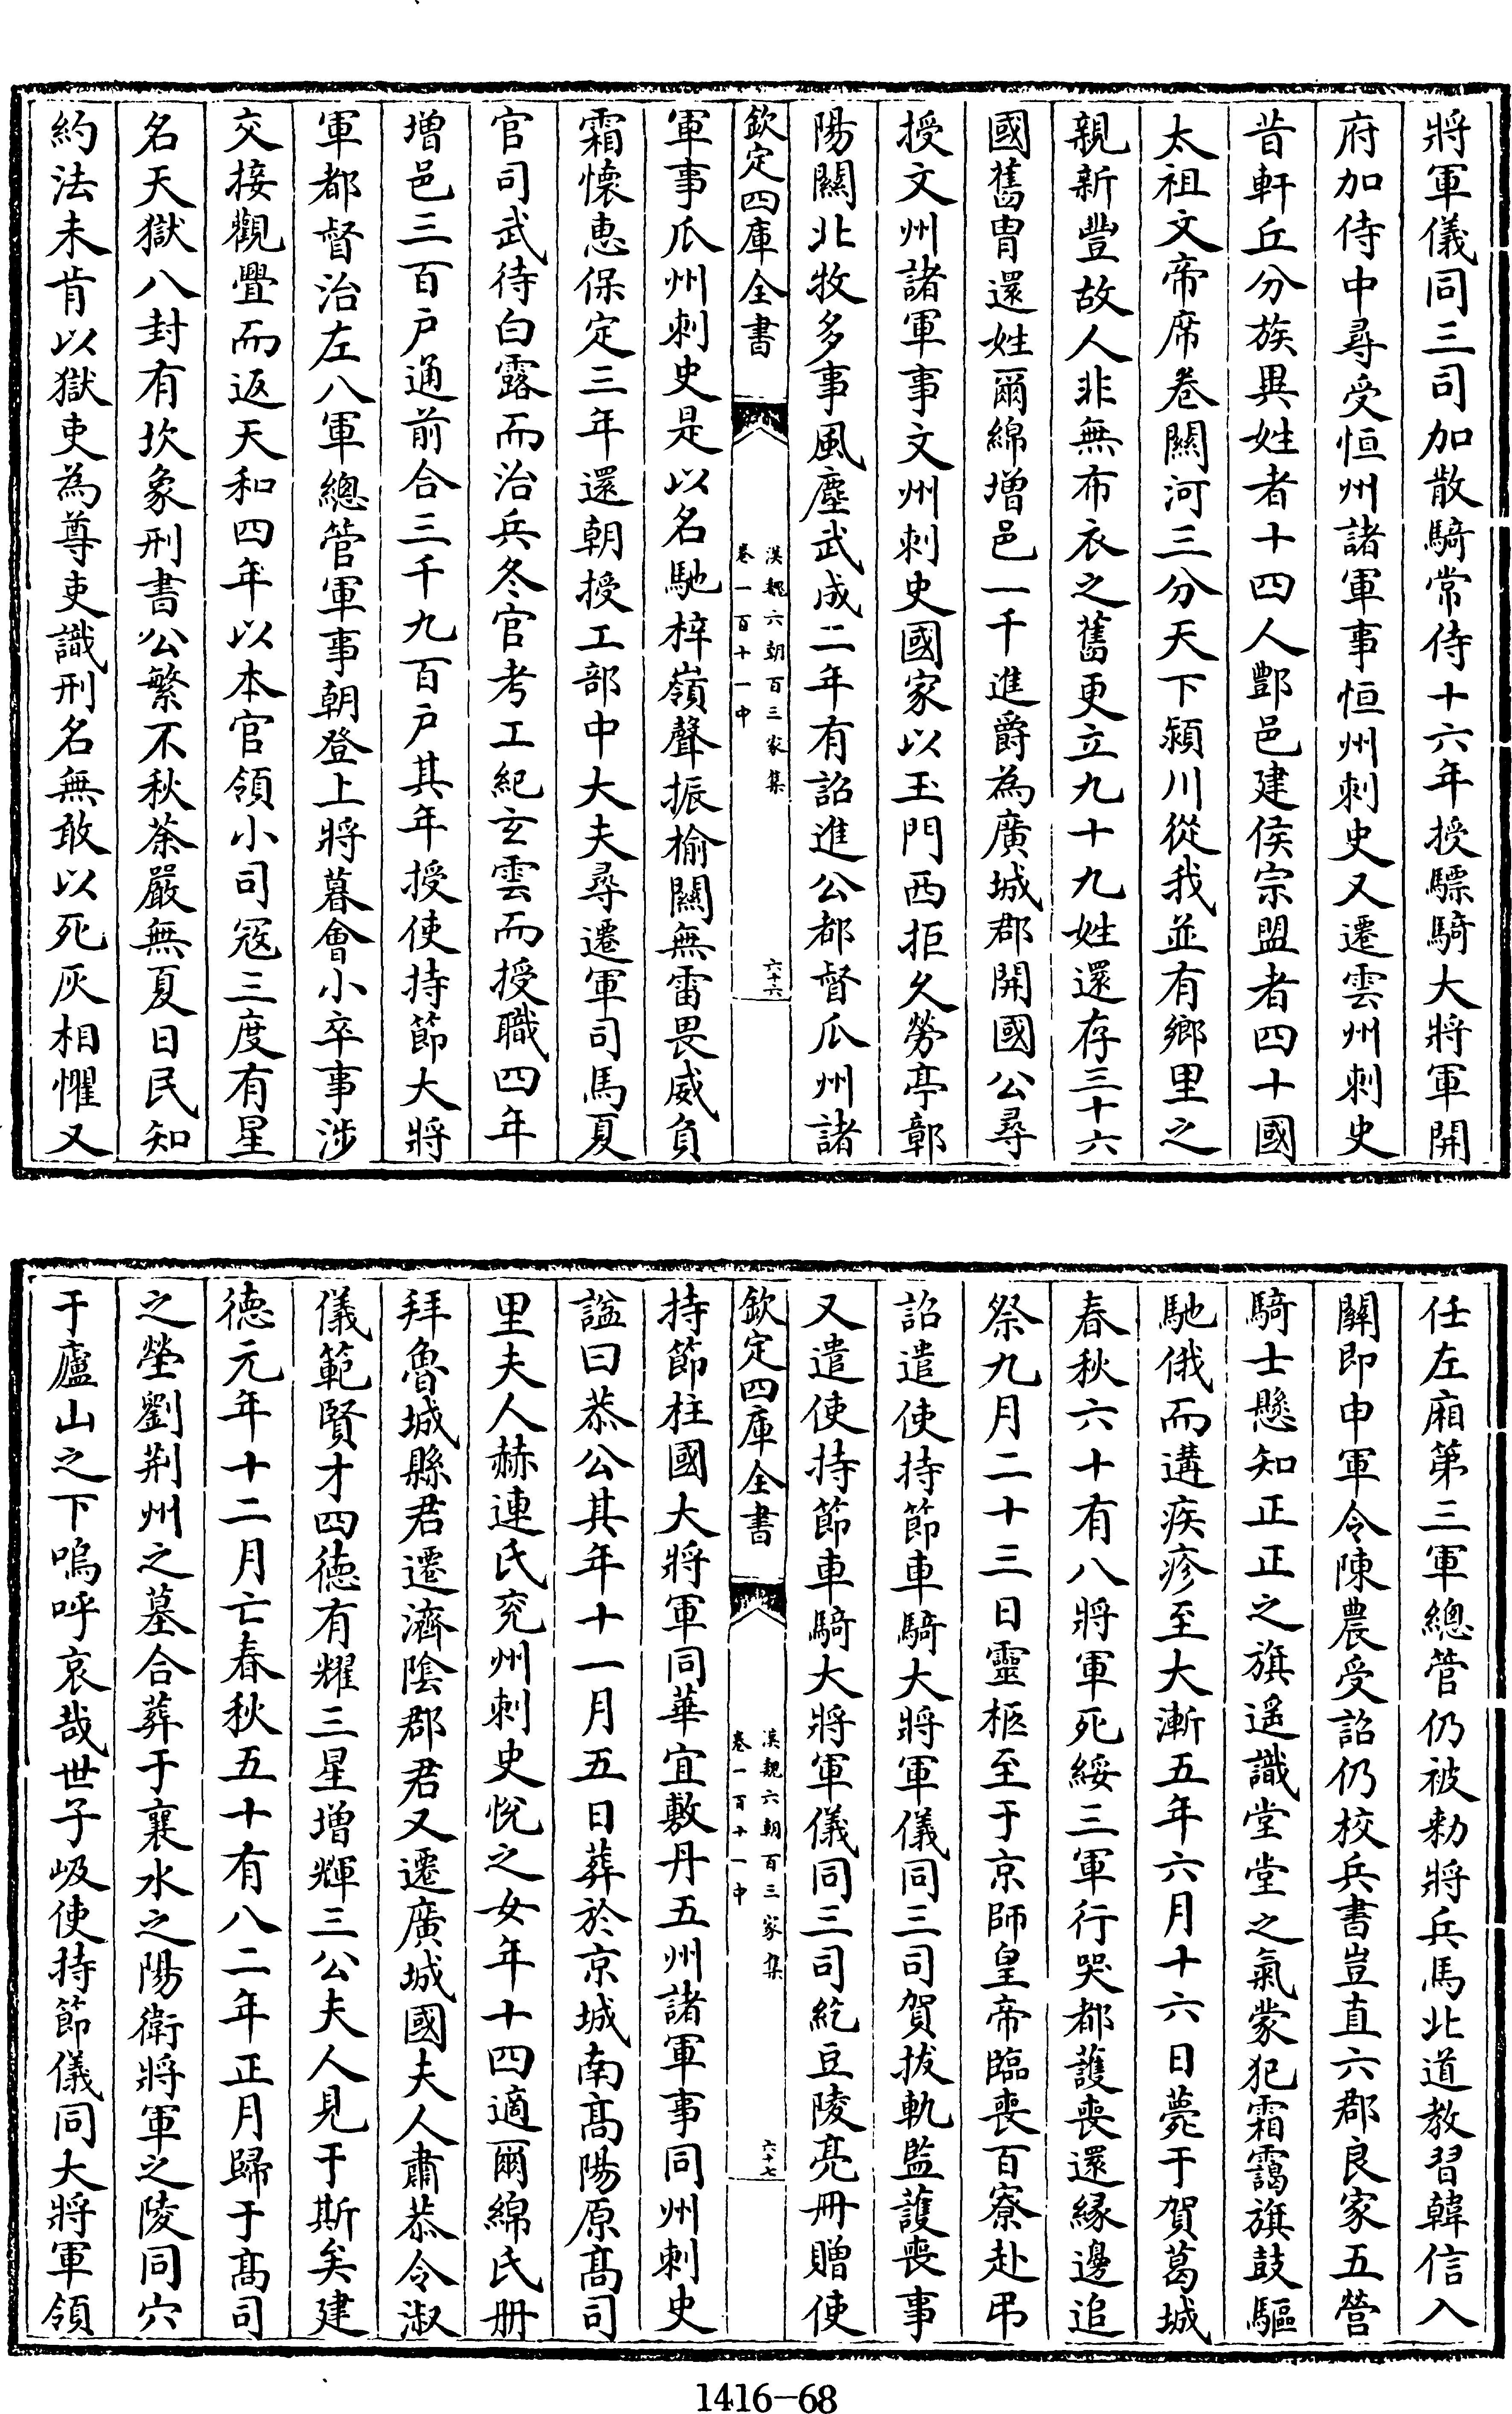 將軍儀同三司加散騎常侍十六年授驃騎大將軍開
府加侍中尋受恒州諸軍事恒州刺史又遷雲州刺史
昔軒丘分族異姓者十四人酆邑建侯宗盟者四十國
太祖文帝席卷關河三分天下潁川從我並有鄉里之
親新豐故人非無布衣之舊更立九十九姓還存三十六
國舊胄還姓爾綿增邑一千進爵為廣城郡開國公尋
授文州諸軍事文州刺史國家以玉門西拒久勞亭鄣
陽關北牧多事風塵武成二年有詔進公都督瓜州諸
欽定四庫全書
漢魏六朝百三家集
卷一百十一中
六十六
軍事瓜州刺史是以名馳梓嶺聲振榆關無雷畏威負
霜懷惠保定三年還朝授工部中大夫尋遷軍司馬夏
官司武待白露而治兵冬官考工紀玄雲而授職四年
增邑三百户通前合三千九百户其年授使持節大將
軍都督治左八軍總管軍事朝登上將暮會小卒事涉
交接觀舋而返天和四年以本官領小司冦三度有星
名天獄八封有坎象刑書公繁不秋荼嚴無夏日民知
約法未肯以獄吏為尊吏識刑名無敢以死灰相懼又
任左廂第三軍總管仍被勅將兵馬北道教習韓信入
關即申軍令陳農受詔仍校兵書豈直六郡良家五營
騎士懸知正正之旗遥識堂堂之氣蒙犯霜靄旗鼓驅
馳俄而遘疾疹至大漸五年六月十六日薨于賀葛城
春秋六十有八將軍死綏三軍行哭都護喪還緣邊追
祭九月二十三日靈柩至于京師皇帝臨喪百寮赴弔
詔遣使持節車騎大將軍儀同三司賀拔軌監護喪事
又遣使持節車騎大將軍儀同三司紇豆陵亮册贈使
欽定四庫全書
漢魏六朝百三家集
卷一百十一中
六十七
持節柱國大將軍同華宜敷丹五州諸軍事同州刺史
諡曰恭公其年十一月五日葬於京城南髙陽原髙司
里夫人赫連氏兖州刺史恱之女年十四適爾綿氏册
拜魯城縣君遷濟隂郡君又遷廣城國夫人肅恭令淑
儀範賢才四徳有耀三星增輝三公夫人見于斯矣建
德元年十二月亡春秋五十有八二年正月歸于髙司
之塋劉荆州之墓合葬于襄水之陽衛將軍之陵同穴
于廬山之下嗚呼哀哉世子岋使持節儀同大將軍領
1416-68